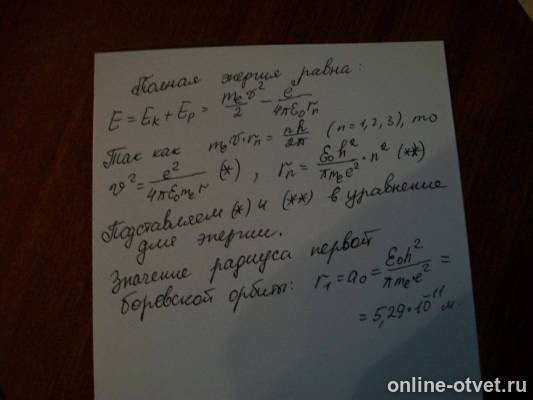 Полная энергия равна:
E = Eк + Eр = mₑv²/2 − e²/4πε₀rₙ
Так как mₑv·rₙ = nh/2π (n=1,2,3), то
v² = e²/4πε₀mₑr (*), rₙ = ε₀h²/πmₑe² · n² (**)
Подставляем (*) и (**) в уравнение
для энергии.
Значение радиуса первой
боровской орбиты: r₁ = a₀ = ε₀h²/πmₑe² =
= 5,29·10⁻¹¹ м.
online-otvet.ru